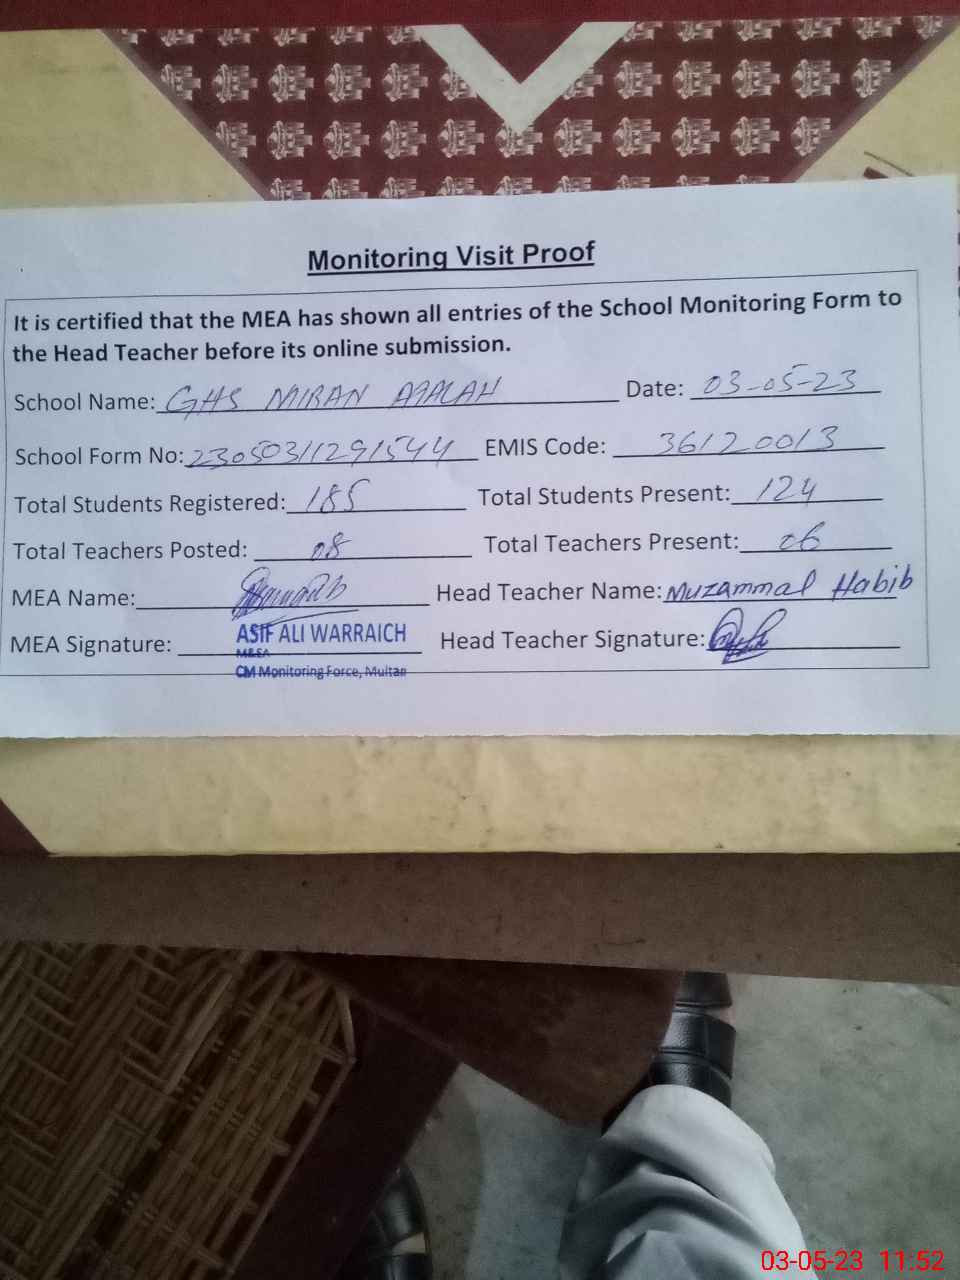 Monitoring Visit Proof
It is certified that the MEA has shown all entries of the School Monitoring Form to
the Head Teacher before its online submission.
School Name: GHS MIRAN Date: 03-05-23
School Form No: 23050311291544 EMIS Code: 36120013
Total Students Registered: 185 Total Students Present: 124
Total Teachers Posted: 08 Total Teachers Present: 06
MEA Name: Head Teacher Name: Muzammal Habib
MEA Signature: ASIF ALI WARRAICH Head Teacher Signature:
MEA
CM Monitoring Force, Multan
03-05-23 11:52